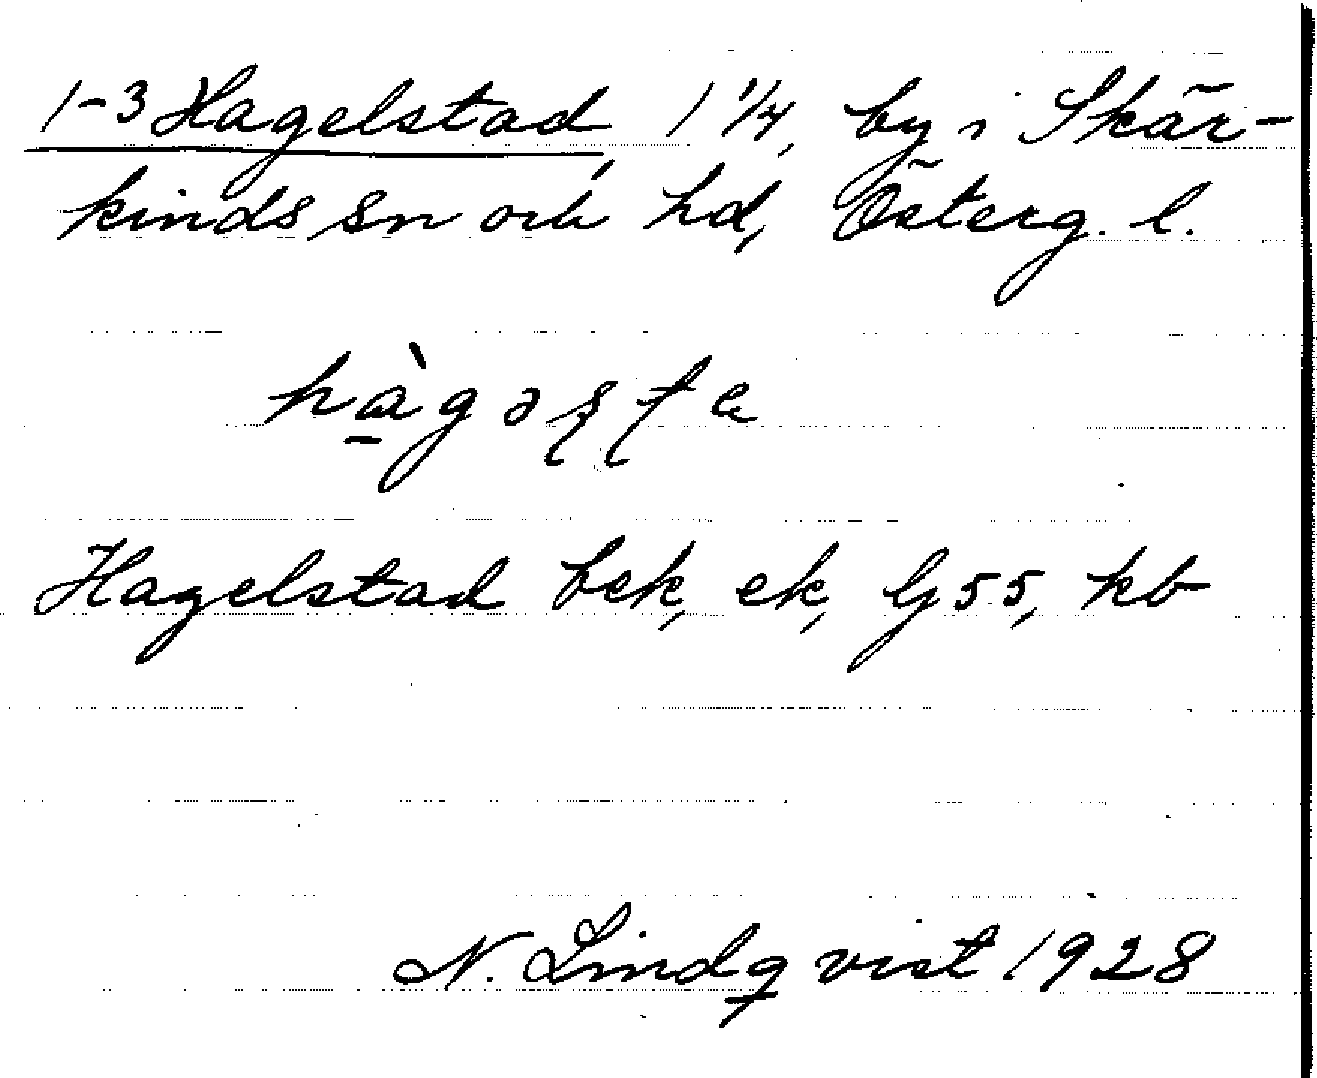 1-3 Hagelstad, 1 1/4, by i Skär-
kinds sn och hd, Österg. l.
hàgəʂʈa
Hagelstad bek, ek, Gj 55, kb
N. Lindqvist 1928